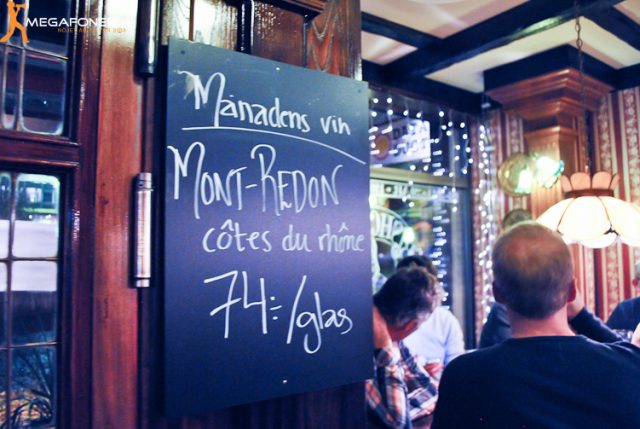 MEGAFONEN
Månadens vin
MONT-REDON
côtes du rhône
74:-/glas